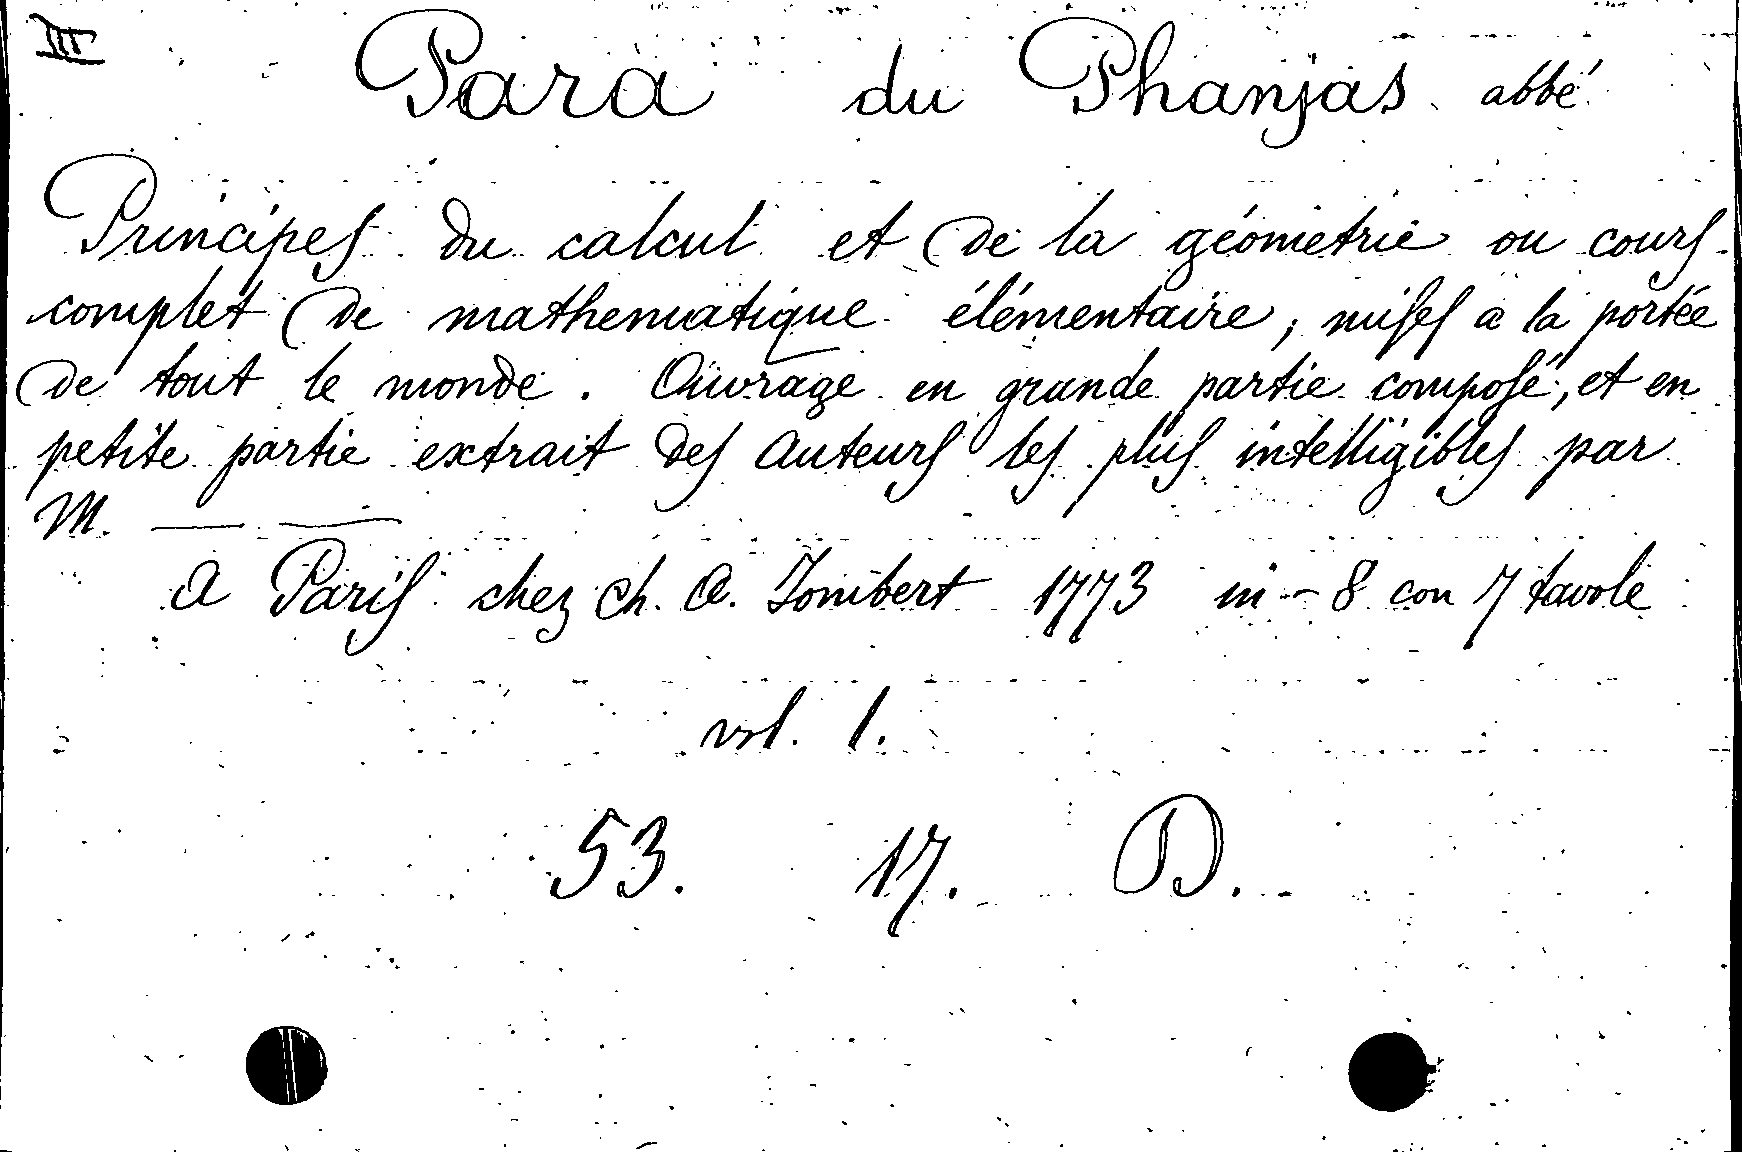 III
Para du Phanjas abbé
Principes du calcul et de la géometrie ou cours
complet de mathematique élémentaire, mises a la portée
de tout le monde. Ouvrage en grande partie composé, et en
petite partie extrait des auteurs les plus intelligibles par
M. — —
A Paris chez Ch. A. Jombert 1773 in-8 con 7 tavole
vol. 1.
53. 17. D.